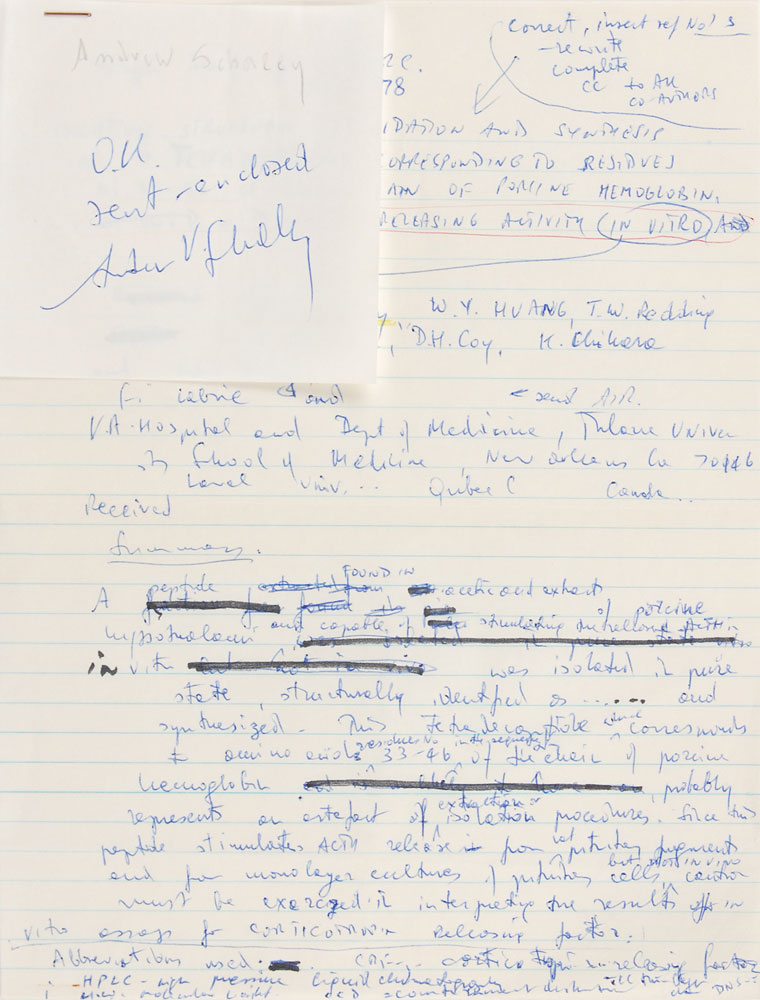 Andrew Schally
O.K.
sent - enclosed
correct, insert ref No's
- rewrite
complete
CC to All
co-AUTHORS
78
IDATION AND SYNTHESIS
CORRESPONDING TO RESIDUES
OF PORCINE HEMOGLOBIN.
RELEASING ACTIVITY (IN VITRO)
W.Y. HUANG, T.W. Redding
D.H. Coy, K. Chihara
F. Labrie and
V.A. Hospital and Dept of Medicine, Tulane Univer
sity School of Medicine, New Orleans La 70146
Laval Univ... Quebec Canada..
Received
Summary.
FOUND IN
A peptide acetic acid extracts
of porcine
hypothalami and capable of stimulating the release ACTH
in vitro was isolated in pure
state, structurally identified as ...... and
synthesized - This Tetradecapeptide which corresponds
residues No in the sequence
to amino acids 33-46 of the chain of porcine
hemoglobin, probably
extraction or
represents an artefact of isolation procedures. Since this
peptide stimulates ACTH release from rat pituitary fragments
but not in vivo
and from monolayer cultures of pituitary cells, caution
must be exercized in interpreting the results of in
vitro assays for CORTICOTROPIN Releasing factor.
Abbreviations used: CRF - corticotropin releasing factor
HPLC - high pressure liquid chromatography